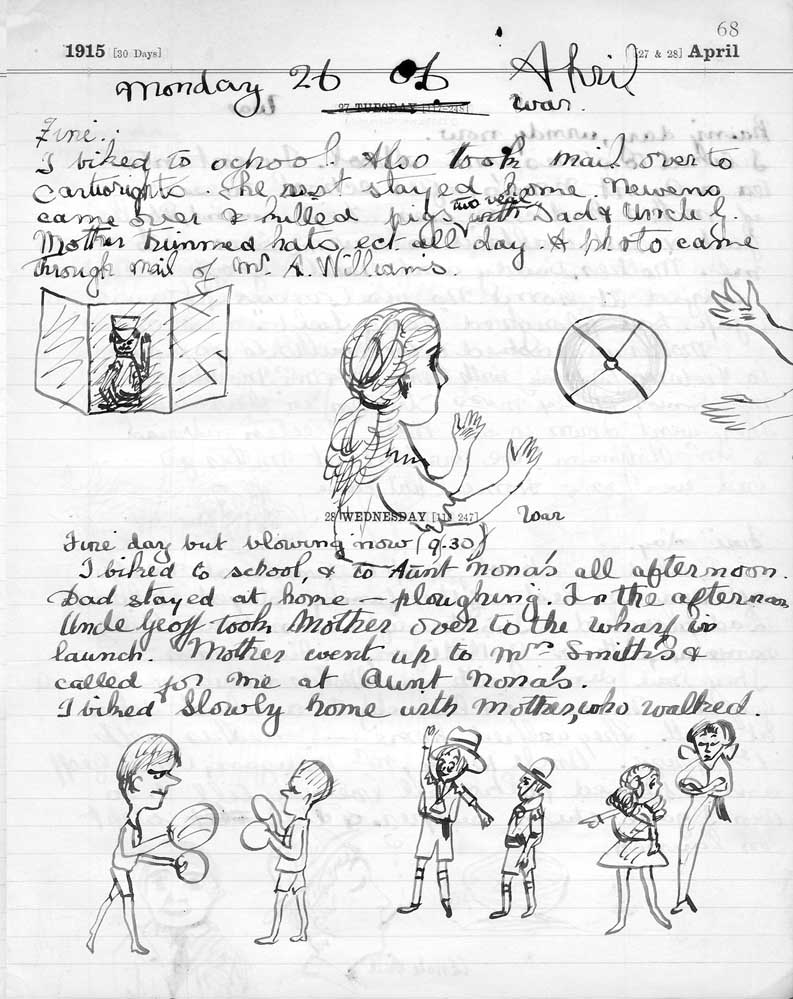 68
1915 [30 Days] [27 & 28] April
Monday 26 of April
27 TUESDAY [117-248] War.
Fine.
I biked to school. Also took mail over to
Cartwrights. The rest stayed home. Newens
came over & killed pigs two veal with Dad & Uncle G.
Mother trimmed hats ect all day. A photo came
through mail of Mr A. Williams.
28 WEDNESDAY [118 247] War
Fine day but blowing now (9.30)
I biked to school, & to Aunt Nona's all afternoon.
Dad stayed at home — ploughing. In the afternoon
Uncle Geoff took Mother over to the wharf in
launch. Mother went up to Mrs Smith's &
called for me at Aunt Nona's.
I biked slowly home with Mother, who walked.